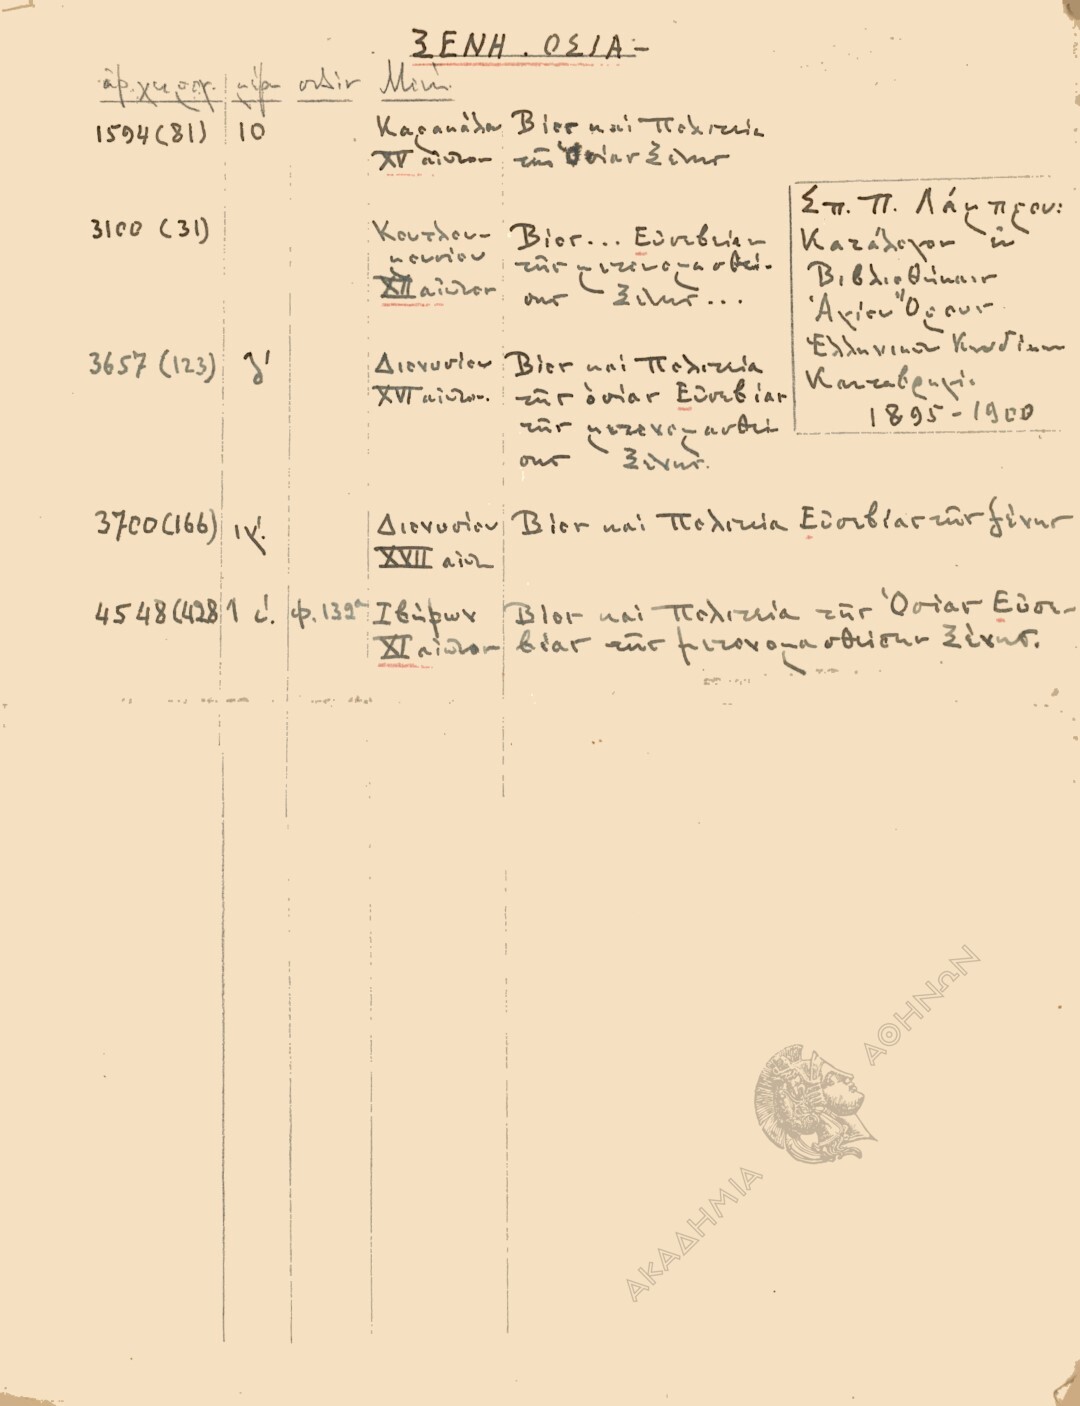 ΞΕΝΗ. ΟΣΙΑ-
ἀρ. χειρογ. σελὶς Μονὴ
1594(81) 10 Καρακάλου Βίος καὶ Πολιτεία
XV αἰῶνος τῆς Ὁσίας Ξένης
3100 (31) Κουτλου- Βίος... Εὐσεβείας
μουσίου τῆς μετονομασθεί-
XII αἰῶνος σης Ξένης...
3657 (123) γ' Διονυσίου Βίος καὶ Πολιτεία
XVI αἰῶνος. τῆς ὁσίας Εὐσεβίας
τῆς μετονομασθεί
σης Ξένης.
3700(166) ιγ'. Διονυσίου Βίος καὶ Πολιτεία Εὐσεβίας τῆς ξένης
XVII αἰών
4548(428) φ. 139α Ἰβήρων Βίος καὶ Πολιτεία τῆς Ὁσίας Εὐσε-
XI αἰῶνος βίας τῆς μετονομασθείσης Ξένης.
Σπ. Π. Λάμπρου:
Κατάλογος ἐν
Βιβλιοθήκαις
Ἁγίου Ὄρους
Ἑλληνικῶν Κωδίκων
Κανταβριγία
1895-1900
ΑΚΑΔΗΜΙΑ ΑΘΗΝΩΝ